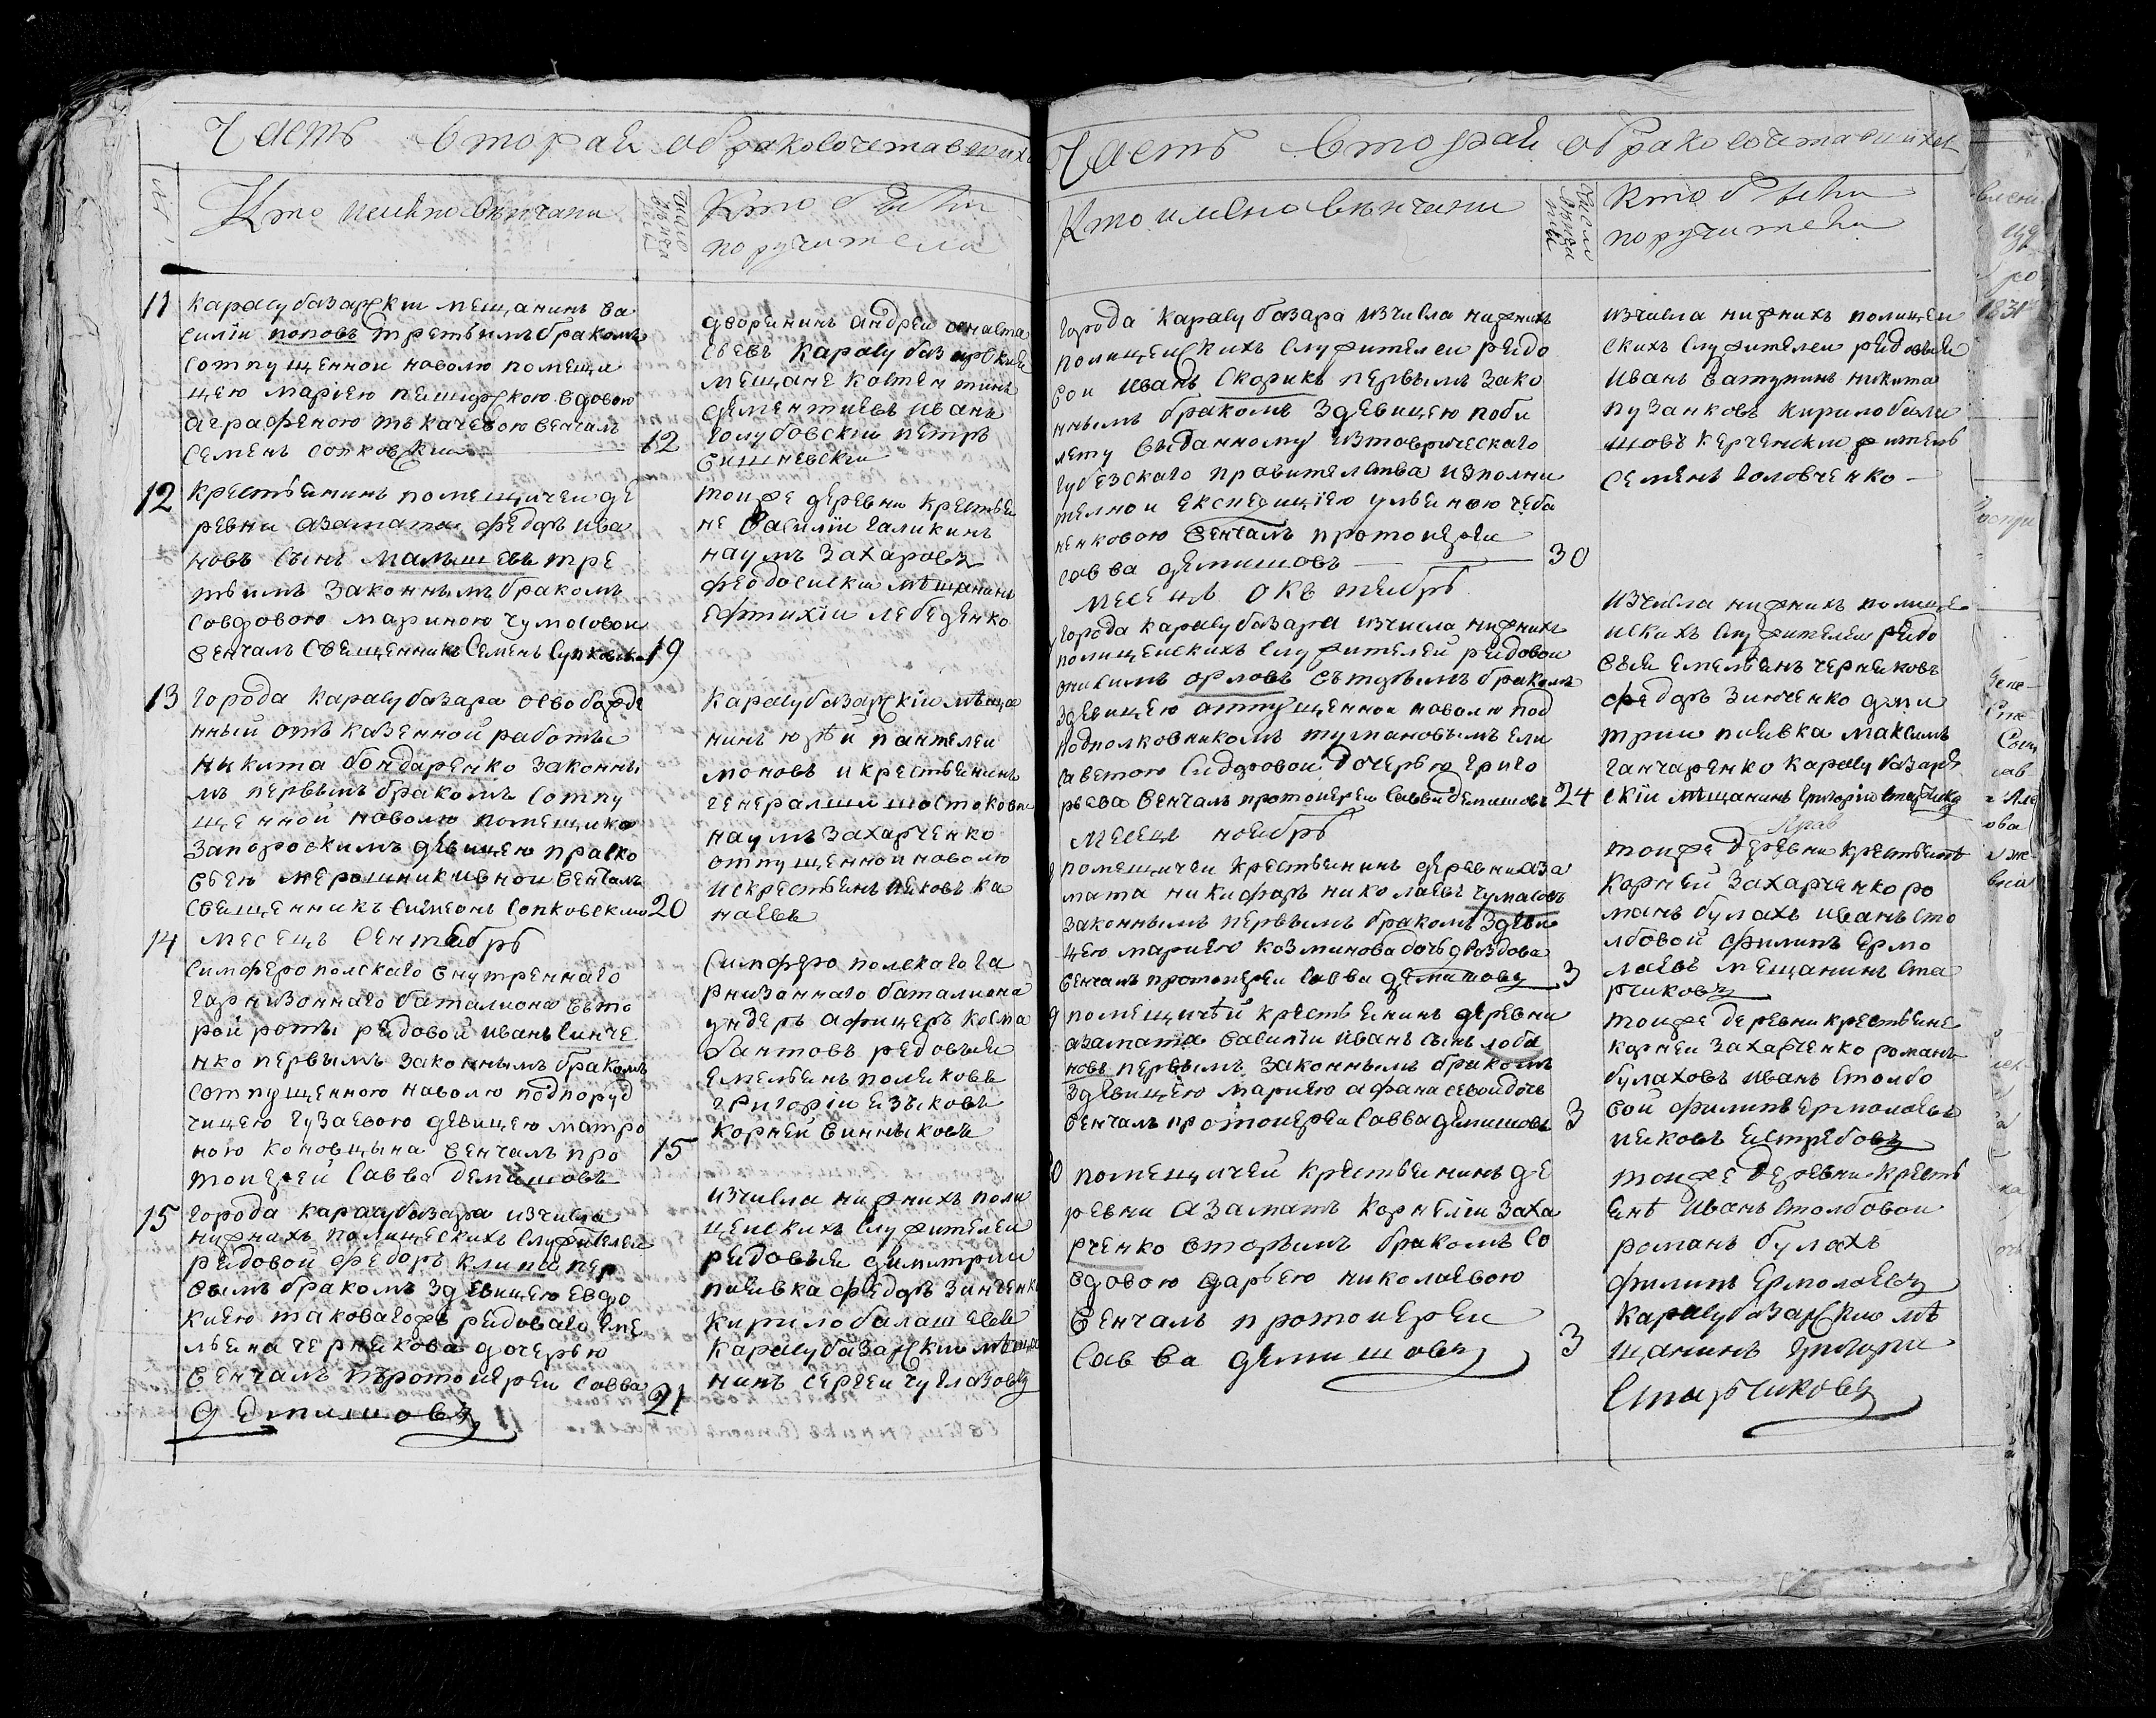 Часть вторая о бракосочетавшихся
Кто именно венчани
Кто были
поручители
11 карасубазарски мещанинъ ва
силiи поповъ третьимъ бракомъ
сотпущенной наволю помещи
цею марiею
вдовою
аграфеною ткачевою венчалъ
семенъ сопковски 12
дворянинъ андреи
карасубазарские
мещане костентинъ
дементиевъ иванъ
голубовскiи петръ
вишневски
12 крестьянинъ помещичеи де
ревни азамата федоръ ива
новъ сынъ малышевъ тре
тьимъ законнымъ бракомъ
совдовою мариною чумосовои
венчалъ священникъ семенъ 19
тоиже деревни крестья
не василiи галикинъ
наумъ захаровъ
феодосиски мѣщанинъ
ефтихiи лебеденко
13 города карасубазара освобожде
нный отъ казенной работы
никита бондаренко законны
мъ первымъ бракомъ сотпу
щенной наволю помещико
запороскимъ девицею праско
вьею мерошникивнои венчалъ
священникъ симеонъ сопковскии 20
карасубазарскiи мѣща
нинъ юрѣй пантелеи
моновъ и крестьянинъ
генералши шостаковои
наумъ захарченко
отпущенной наволю
искрестьянъ яковъ ка
наевъ
14 месецъ сентябрь
симферополскаго внутреннаго
гарнизоннаго баталиона вто
рой роты рядовой иванъ синче
нко первымъ законнымъ бракомъ
сотпущенною наволю подпоруд
чицею гузаевою девицею матро
ною коновцына венчалъ про 15
тоиерей савва демишовъ
симферополскаго га
рнизоннаго баталиона
ундеръ афицеръ косма
бантовъ редовыя
емельянъ поляковъ
григорiи езыковъ
корней винныковъ
15 города карасубазара изчисла
нижнихъ полицеискихъ служителеи
рядовой федоръ клипа пер
вымъ бракомъ здевицею евдо
киею таковагожъ рядоваго еме
льяна чернякова дочерью
венчалъ протоиереи савва
демишовъ 21
изчисла нижнихъ поли
цеискихъ служителеи
рядовыя димитрии
пиявка федоръ зинченко
кирило балашевъ
карасубазарскии мѣща
нинъ сергеи чуглазовъ
Часть вторая о бракосочетавшихся
Кто имено венчани
Кто были
поручители
города карасубазара изчисла нижнихъ
полицеискихъ служителеи рядо
вои иванъ скорикъ первымъ зако
ннымъ бракомъ здевицею поби
лету выданному изтаврическаго
губернскаго правителства изполни
телнои експедицiею ульяною чеба
ненковою венчалъ протоиереи
савва демишовъ 30
изчисла нижнихъ полицеи
скихъ служителеи рядовыя
иванъ ватутинъ никита
пузанковъ кирило балa
шовъ керченски житель
семенъ головченко
месецъ октябрь
города карасубазара изчисла нижнихъ
полицеискихъ служителей рядовои
онисимъ орловъ вторымъ бракомъ
здевицею отпущеннои наволю под
подполковникомъ тумановымъ ели
саветою сидоровои дочерью григо
рьева венчалъ протоиереи савва демишовъ 24
изчисла нижнихъ полице
искихъ служителеи рядо
выя емельянъ черняковъ
федоръ зинченко дми
трии пиявка максимъ
ганчаренко карасубазаре
скiи мѣщанинъ григорiи старчико
месецъ ноябрь
помещичеи крестьянинъ деревни аза
мата никифоръ николаевъ чумасовъ
законнымъ первымъ бракомъ здеви
цею мариею козминова дочь дроздова
венчалъ протоиереи савва демишовъ 3
тоиже деревни крестьянъ
корней захарченко ро
манъ булахъ иванъ сто
лбовой филипъ ермо
лаевъ мещанинъ ста
рчиковъ
9 помещичѣй крестьянинъ деревни
азамата василiи иванъ сынъ лоба
новъ первымъ законнымъ бракомъ
здевицею мариею афанасевои дочь
венчалъ протоиереи савва демишовъ 3
тоиже деревни крестьяне
корнеи захарченко романъ
булаховъ иванъ столбо
вой филипъ ермолаевъ
яковъ ястребовъ
0 помещичей крестьянинъ де
ревни азаматъ корнелiи заха
рченко вторымъ бракомъ со
вдовою дарьею николаевою
венчалъ протоиереи
савва демишовъ 3
тоиже деревни кресть
янѣ иванъ столбовои
романъ булахъ
филипъ ермолаевъ
карасубазарскии мѣ
щанинъ григори
старчиковъ